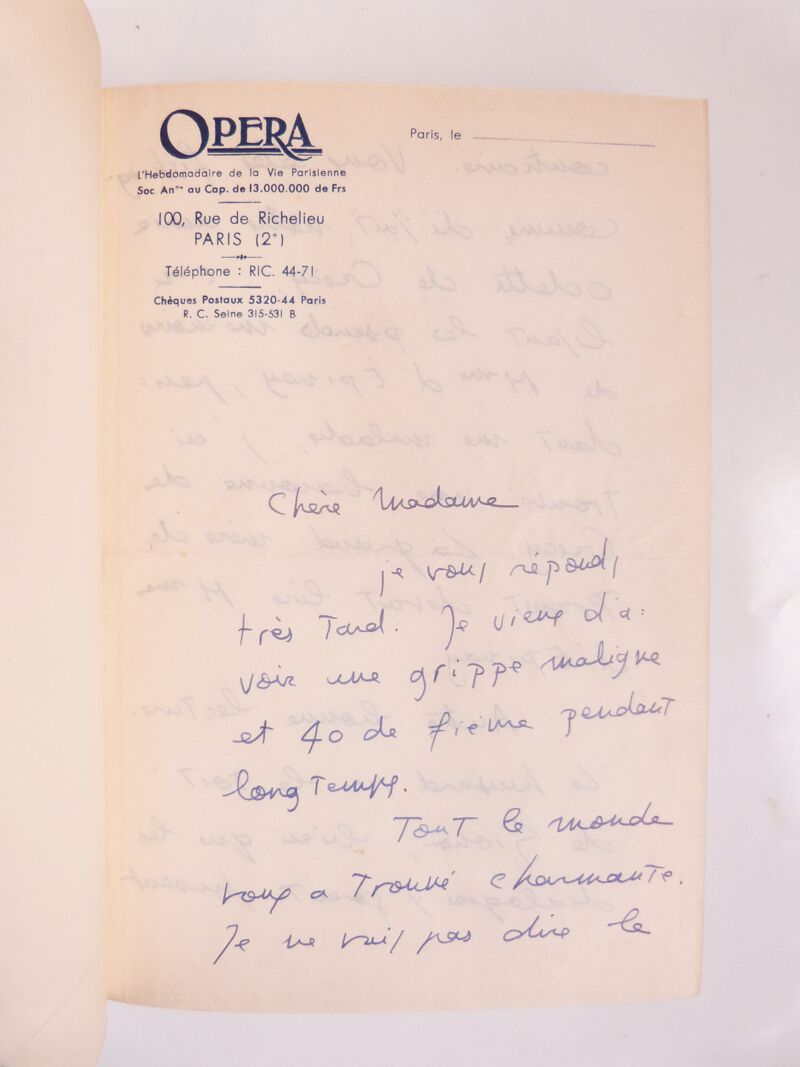 OPERA
L'Hebdomadaire de la Vie Parisienne
Soc. Anme au Cap. de 13.000.000 de Frs
100, Rue de Richelieu
PARIS (2e)
Téléphone : RIC. 44-71
Chèques Postaux 5320-44 Paris
R. C. Seine 315-531 B
Paris, le
Chère Madame
je vous réponds
très tard. Je viens d'a-
voir une grippe maligne
et 40 de fièvre pendant
longtemps.
Tout le monde
vous a trouvé charmante.
Je ne vais pas dire le